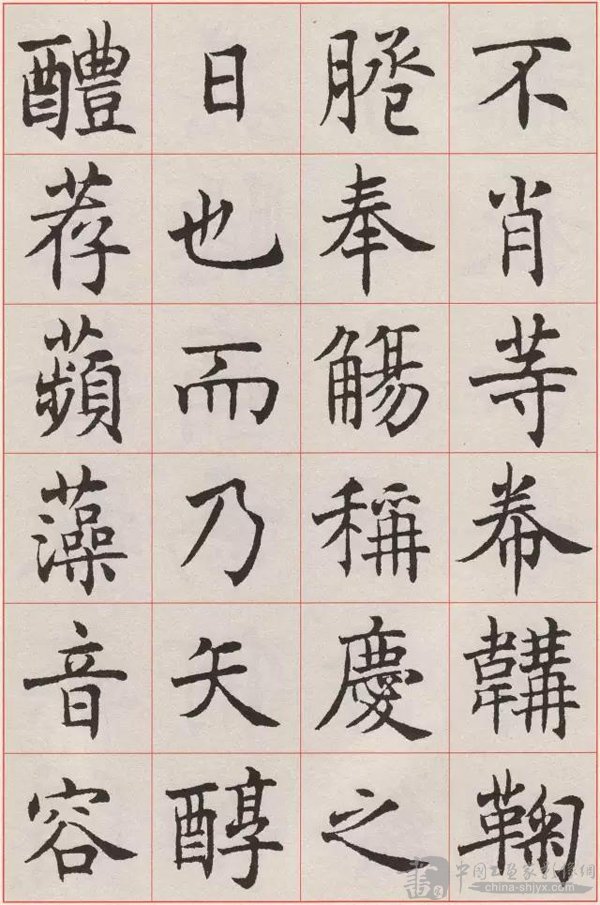 不肖等帣韝鞠
奉觴稱慶之
日也而乃矢醇
醴荐蘋藻音容
china-shjyx.com